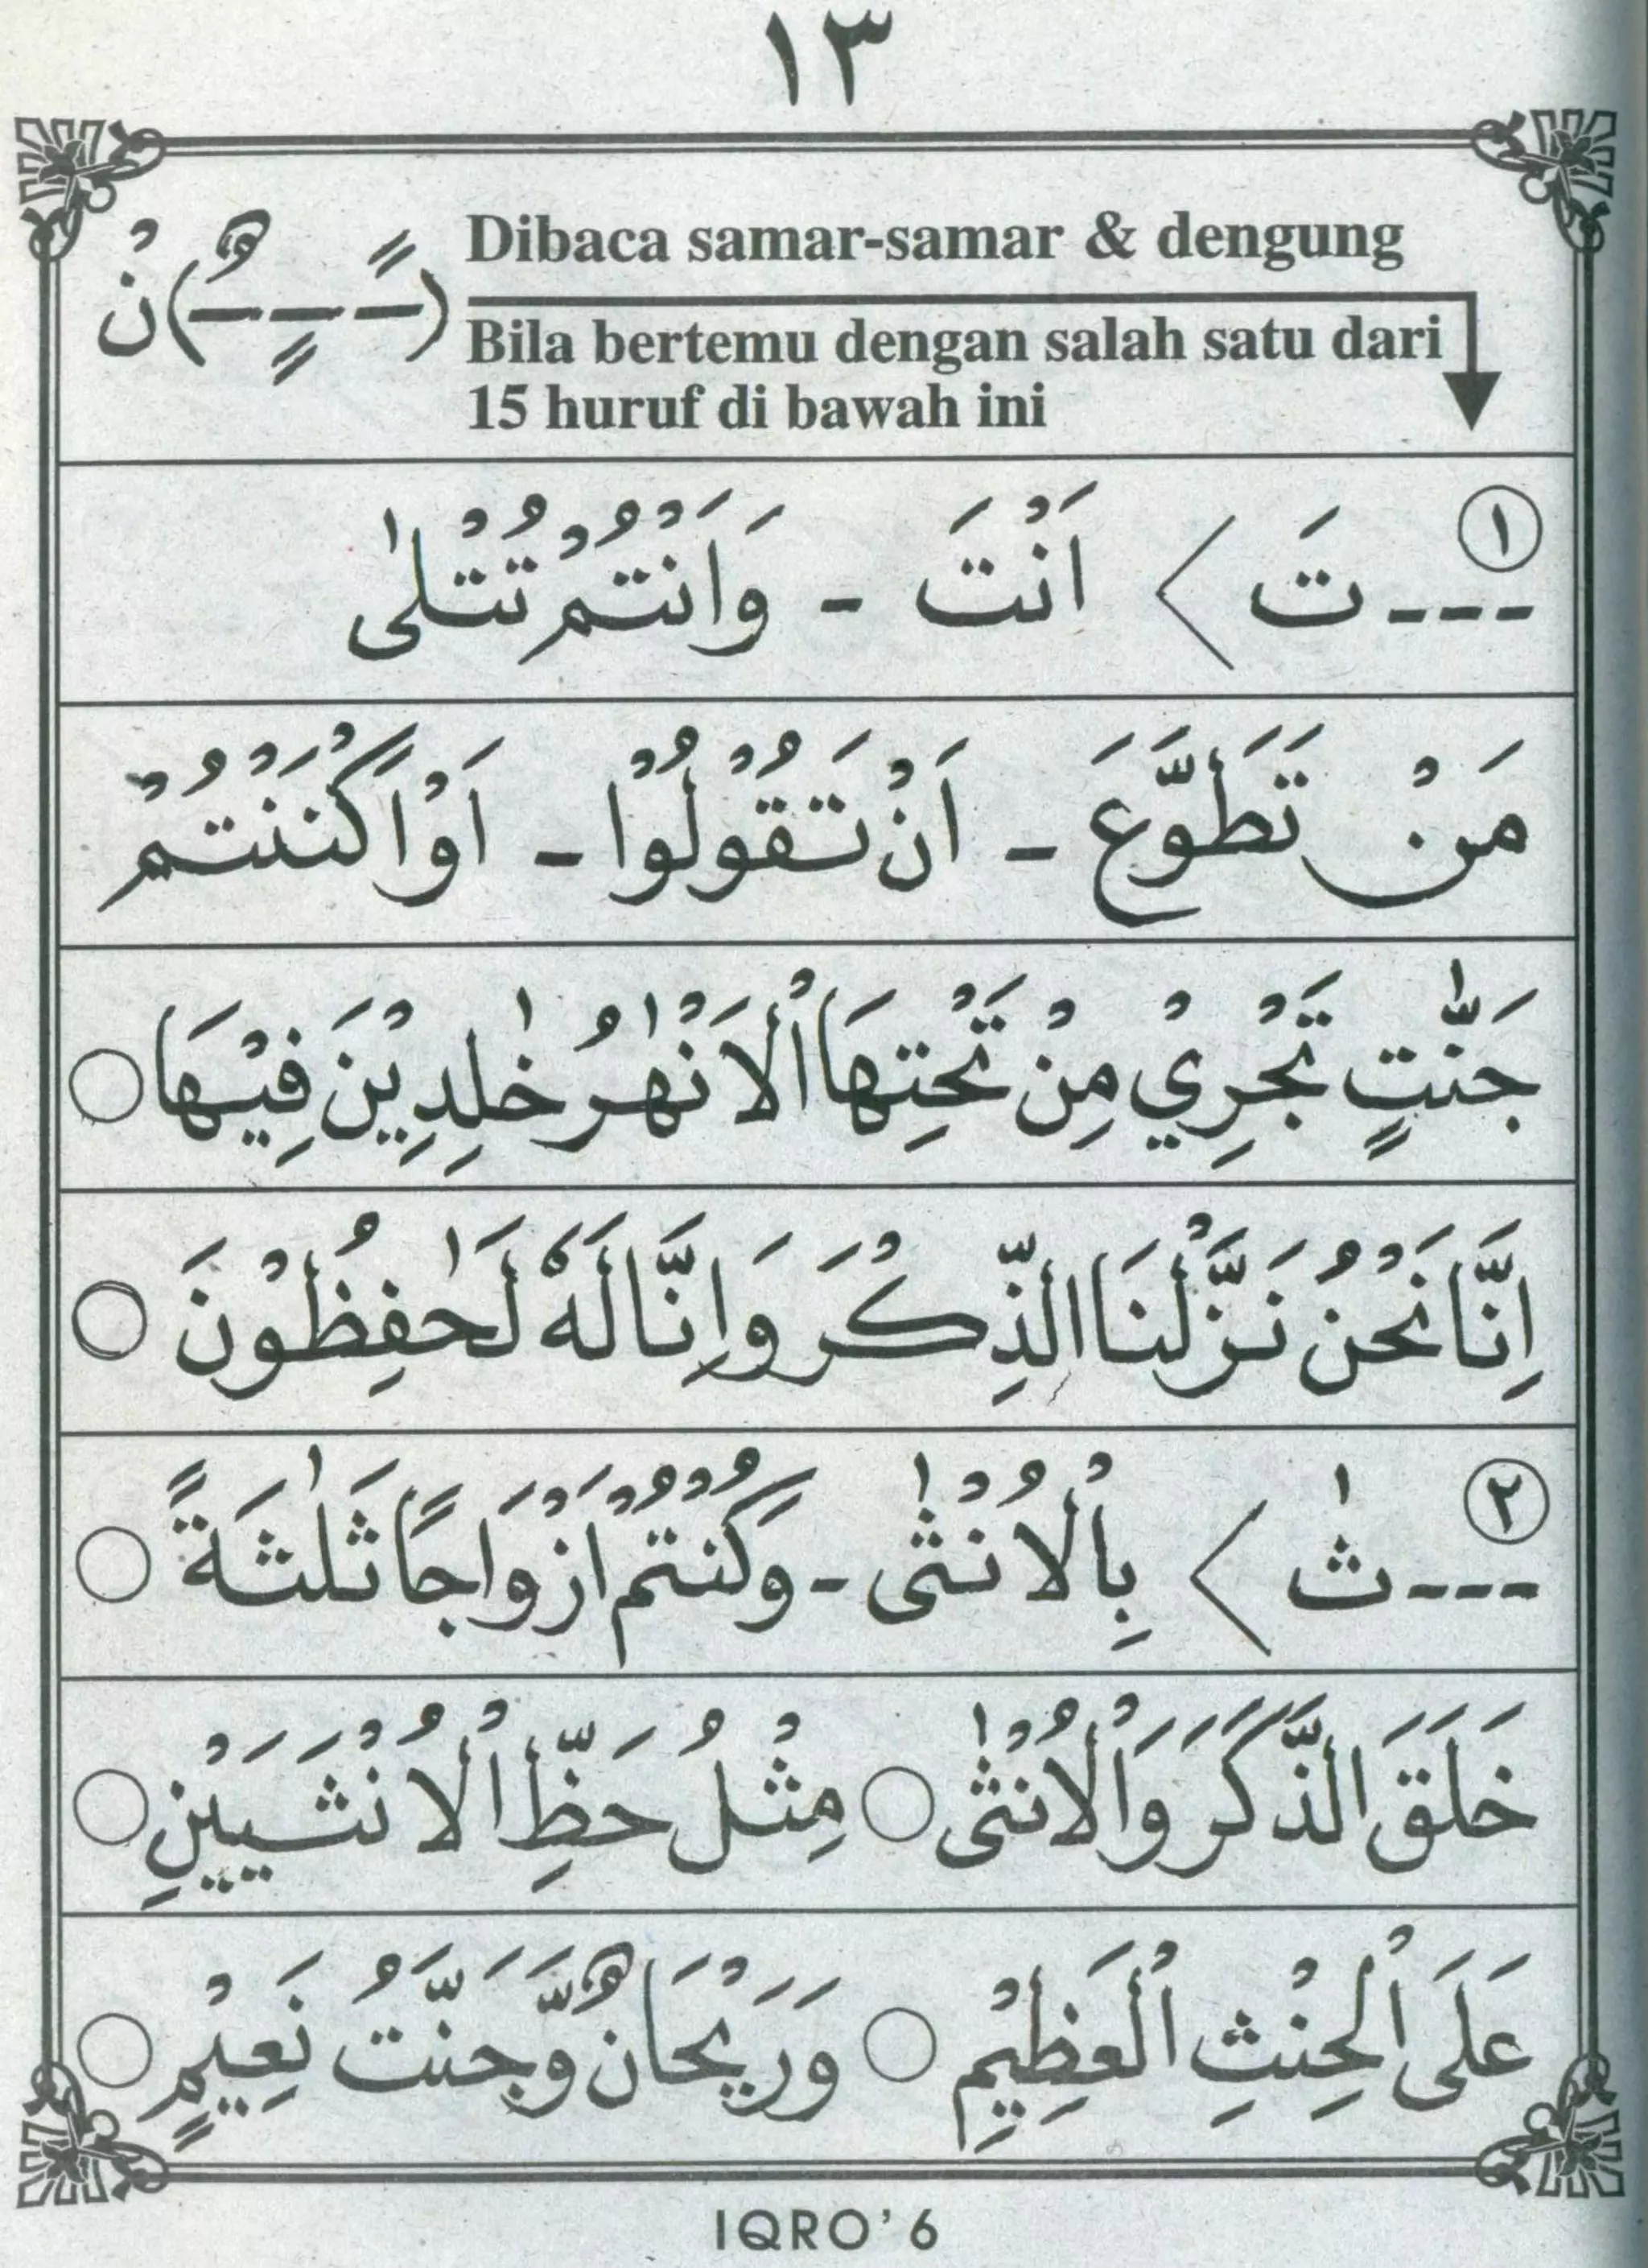 ١٣
نْ (ـًـ ـٍـ ـٌـ) Dibaca samar-samar & dengung
Bila bertemu dengan salah satu dari
15 huruf di bawah ini
١ ---تَ > اَنْتَ - وَاَنْتُمْ تُتْلٰى
مَنْ تَطَوَّعَ - اَنْ تَقُوْلُوْا -
جَنّٰتٍ تَجْرِيْ مِنْ تَحْتِهَا اْلاَنْهٰرُ خٰلِدِيْنَ فِيْهَا ○
اِنَّا نَحْنُ نَزَّلْنَا الذِّكْرَ وَاِنَّا لَهٗ لَحٰفِظُوْنَ ○
٢ ---ثٰ > بِاْلاُنْثٰى - وَكُنْتُمْ اَزْوَاجًا ثَلٰثَةً ○
خَلَقَ الذَّكَرَ وَاْلاُنْثٰى ○ مِثْلُ حَظِّ اْلاُنْثَيَيْنِ ○
عَلَى الْحِنْثِ الْعَظِيْمِ ○ وَرَيْحَانٌ وَّجَنَّتُ نَعِيْمٍ ○
IQRO' 6